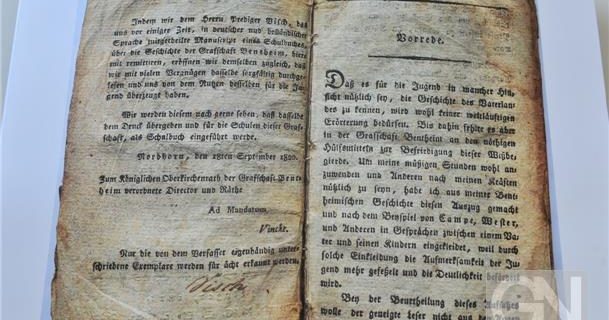 Indem wir dem Herrn Prediger Visch, das
uns vor einiger Zeit, in deutscher und holländischer
Sprache mitgetheilte Manuscript eines Schulbuches,
über die Geschichte der Grafschaft Bentheim, hierbe
mit remittiren, eröffnen wir demselben zugleich, daß
wir mit vielem Vergnügen dasselbe sorgfältig durchge-
lesen und uns von dem Nutzen desselben für die Ju-
gend überzeugt haben.
Wir werden diesem nach gerne sehen, daß dasselbe
dem Druck übergeben und für die Schulen dieser Graf-
schaft, als Schulbuch eingeführt werde.
Nordhorn, den 18ten September 1820.
Zum Königlichen Oberkirchenrath der Grafschaft Bent-
heim verordnete Director und Räthe
Ad Mandatum.
Vincke.
Nur die von dem Verfasser eigenhändig unter-
schriebene Exemplare werden für ächt erkannt werden.
Visch.
Vorrede.
Daß es für die Jugend in mancher Hin-
sicht nützlich sey, die Geschichte des Vaterlan-
des zu kennen, wird wohl keiner weitläuftigen
Erörterung bedürfen. Bis dahin fehlte es aber
in der Grafschaft Bentheim an den nöthigen
Hülfsmitteln zur Befriedigung dieser Wißbe-
gierde. Um meine müßigen Stunden wohl an-
zuwenden und Anderen nach meinen Kräften
nützlich zu seyn, habe ich aus meiner Bent-
heimischen Geschichte diesen Auszug gemacht
und nach dem Beyspiel von Campe, Wester,
und Anderen in Gesprächen zwischen einem Va-
ter und seinen Kindern eingekleidet, weil durch
solche Einkleidung die Aufmerksamkeit der Ju-
gend mehr gefesselt und die Deutlichkeit befördert
wird.
Bey der Beurtheilung dieses Aufsatzes
wolle der geneigte Leser nicht aus den Augen
GN